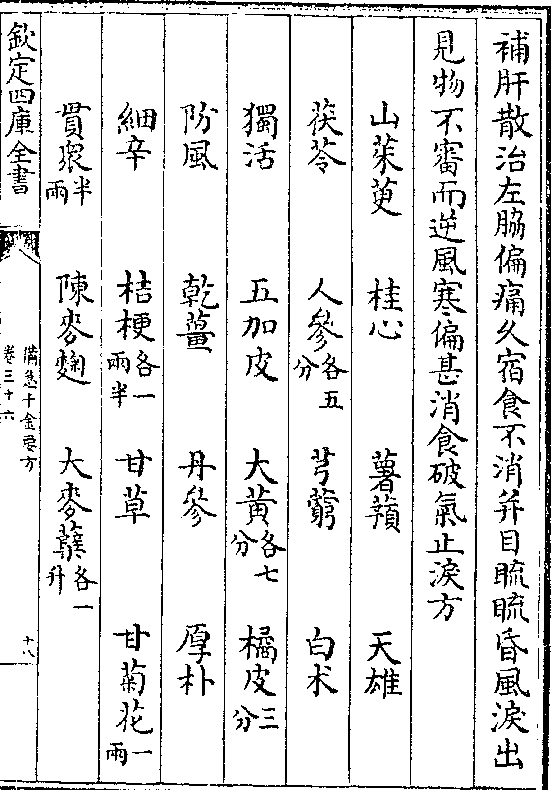 補肝散治左脇偏痛久宿食不消并目䀮䀮昏風淚出
見物不審而逆風寒偏甚消食破氣止淚方
山茱萸　桂心　薯蕷　天雄
茯苓　人參各五分　芎藭　白朮
獨活　五加皮　大黃各七分　橘皮三分
防風　乾薑　丹參　厚朴
細辛　桔梗各一兩半　甘草　甘菊花一兩
貫衆半兩　陳麥麴　大麥蘗各一升
欽定四庫全書
備急千金要方
卷三十六
十八